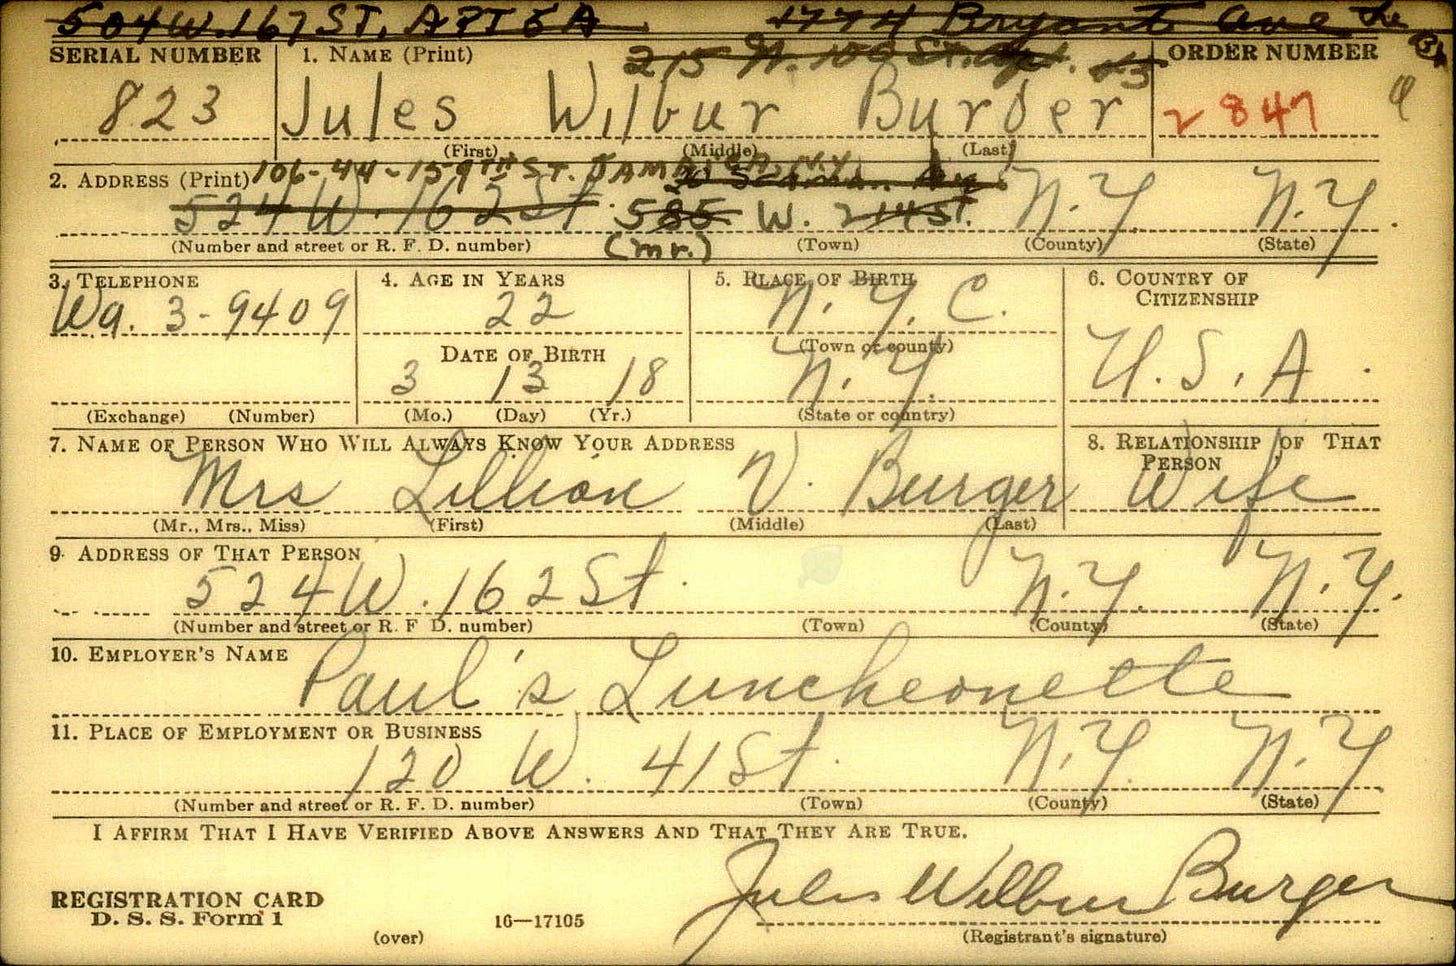 504 W. 167 ST. APT 5A 1774 Bryant Ave the Bx
SERIAL NUMBER 1. NAME (Print) 215 W. 100 St. Apt. ORDER NUMBER
823 Jules Wilbur Burger 2847
(First) (Middle) (Last)
2. ADDRESS (Print) 106-44-159TH ST. JAMAICA, N.Y.
524 W. 162 St. 585 W. 214 St. N.Y. N.Y.
(Number and street or R. F. D. number) (mr.) (Town) (County) (State)
3. TELEPHONE 4. AGE IN YEARS 5. PLACE OF BIRTH 6. COUNTRY OF
CITIZENSHIP
Wa. 3-9409 22 N.Y.C.
DATE OF BIRTH (Town or county)
3 13 18 N.Y. U.S.A.
(Exchange) (Number) (Mo.) (Day) (Yr.) (State or country)
7. NAME OF PERSON WHO WILL ALWAYS KNOW YOUR ADDRESS 8. RELATIONSHIP OF THAT
PERSON
Mrs Lillian V. Burger Wife
(Mr., Mrs., Miss) (First) (Middle) (Last)
9. ADDRESS OF THAT PERSON
524 W. 162 St. N.Y. N.Y.
(Number and street or R. F. D. number) (Town) (County) (State)
10. EMPLOYER'S NAME
Paul's Luncheonette
11. PLACE OF EMPLOYMENT OR BUSINESS
120 W. 41 St. N.Y. N.Y
(Number and street or R. F. D. number) (Town) (County) (State)
I AFFIRM THAT I HAVE VERIFIED ABOVE ANSWERS AND THAT THEY ARE TRUE.
Jules Wilbur Burger
REGISTRATION CARD
D. S. S. Form 1 16—17105
(over) (Registrant's signature)